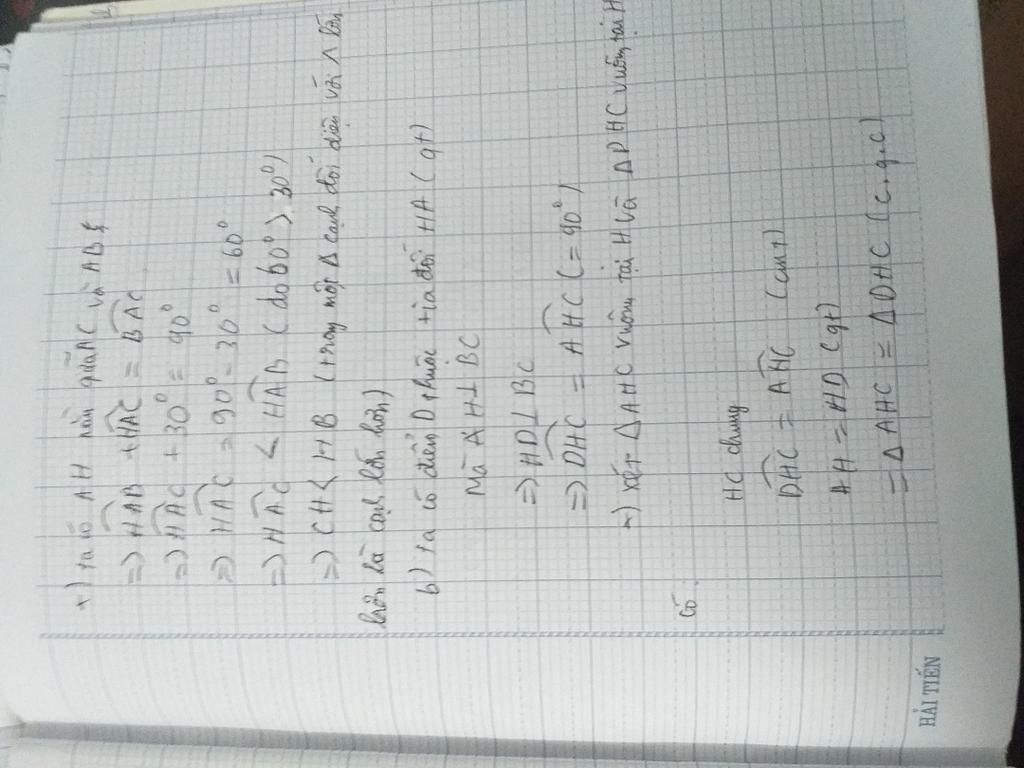 +) ta có AH nằm giữa AC và AB
=> HAB + HAC = BAC
=> HAC + 30° = 90°
=> HAC = 90° - 30° = 60°
=> HAC < HAB (do 60° > 30°)
=> CH < HB (trong một Δ cạnh đối diện với ∧ lớn
hơn là cạnh lớn hơn)
b) ta có điểm D thuộc tia đối HA (gt)
Mà AH ⊥ BC
=> HD ⊥ BC
=> DHC = AHC (= 90°)
+) xét Δ AHC vuông tại H và Δ DHC vuông tại H
Có:
HC chung
DHC = AHC (cmt)
AH = HD (gt)
= Δ AHC = Δ DHC (c.g.c)
HẢI TIẾN